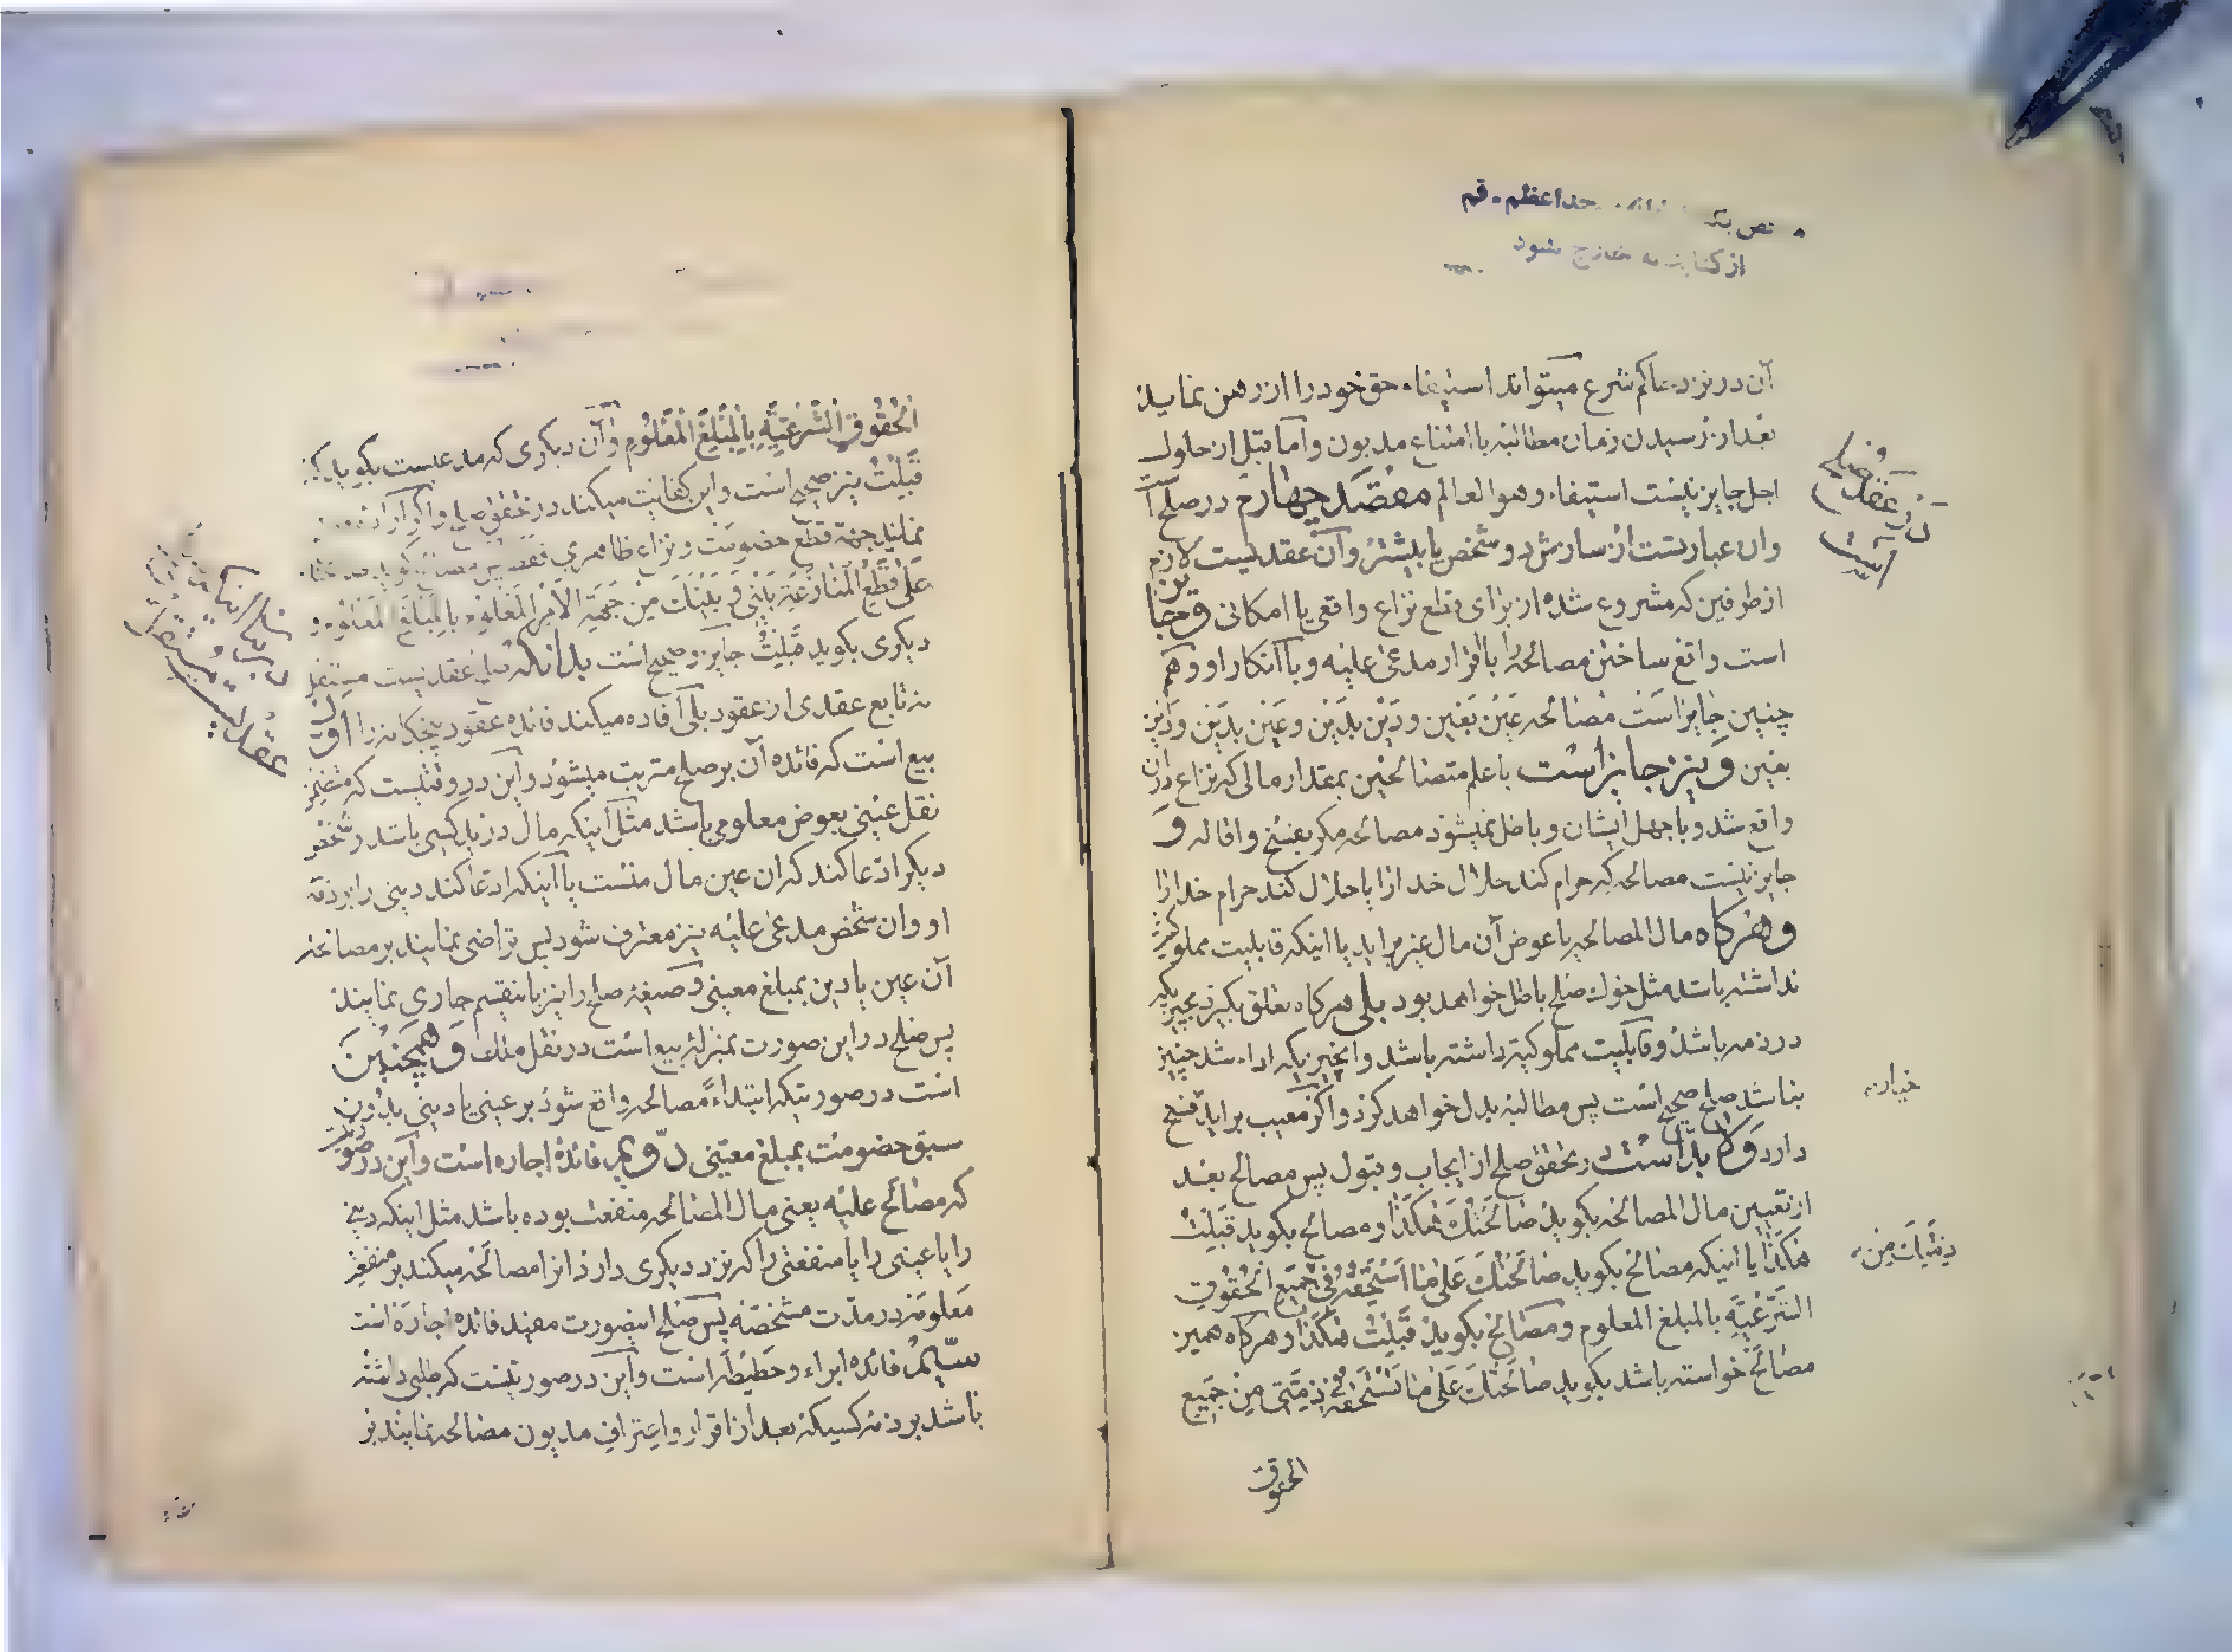 آن در نزد حاکم شرع میتواند استیفاء حق خود را از رهن نماید
بعد از رسیدن زمان مطالبه با امتناع مدیون و اما قبل از حلول
اجل جایز نیست استیفاء وهو العالم مقصد چهارم در صلح
وان عبارتست از سازش دو شخص یا بیشتر و آن عقدیست لازم
از طرفین که مشروع شده از برای قطع نزاع واقعی یا امکانی و جایز
است واقع ساختن مصالحه را با اقرار مدعی علیه و با انکار او و هم
چنین جایز است مصالحه عین بعین و دین بدین و عین بدین و دین
بعین و نیز جایز است با علم متصالحین بمقدار مالی که نزاع در آن
واقع شد و با جهل ایشان و باطل نمیشود مصالحه مکر بفسخ و اقاله و
جایز نیست مصالحه که حرام کند حلال خدا را یا حلال کند حرام خدا را
و هرکاه مال المصالحه یا عوض آن مال غیر براید یا اینکه قابلیت مملوکیت
نداشته باشد مثل خوك صلح باطل خواهد بود بلی هرکاه تعلق بکیرد بچیزیکه
در ذمه باشد و قابلیت مملوکیة داشته باشد وانچیزیکه اداء شد چنین
نباشد صلح صحیح است پس مطالبۀ بدل خواهد کرد و اکر معیب براید فسخ
دارد و لا بد است در تحقق صلح از ایجاب و قبول پس مصالح بعد
از تعیین مال المصالحه بکوید صالحتك هکذا و مصالح بکوید قبلت
هکذا یا اینکه مصالح بکوید صالحتك علی ما استحقه فی جمیع الحقوق
الشرعیه بالمبلغ المعلوم و مصالح بکوید قبلت هکذا و هرکاه همین
مصالح خواسته باشد بکوید صالحتك علی ما تستحقه فی ذمتی من جمیع
الحقوق
در عقد صلح است
خیار
الحقوق الشرعیه بالمبلغ المعلوم و آن دیکری که مدعیست بکوید که
قبلت نیز صحیح است و این کفایت میکند در تحقق صلح و اکر
نمایند جهة قطع خصومت و نزاع ظاهری
علی قطع المنازعة بینی و بینك من جهة الامر المعلوم بالمبلغ المعلوم و
دیکری بکوید قبلت جایز و صحیح است بدانکه صلح عقدیست مستقل
نه تابع عقدی از عقود بلی افاده میکند فائده عقود پنجکانه را اول
بیع است که فائده آن بر صلح مترتب میشود و این در وقتیست که متضمن
نقل عینی بعوض معلومی باشد مثل اینکه مال در ید کسی باشد و شخص
دیکر ادعا کند که ان عین مال منست یا اینکه ادعا کند دینی را بر ذمه
او و ان شخص مدعی علیه نیز معترف شود پس تراضی نمایند بر مصالحه
آن عین یا دین بمبلغ معینی و صیغه صلح را نیز باینقسم جاری نمایند
پس صلح در این صورت بمنزلۀ بیع است در نقل ملك و همچنین
است در صورتیکه ابتداءً مصالحه واقع شود بر عینی یا دینی بدون
سبق خصومت بمبلغ معینی دویم فائدۀ اجاره است و این در صورتیست
که مصالح علیه یعنی مال المصالحه منفعت بوده باشد مثل اینکه دینی
را یا عینی را یا منفعتی را که نزد دیکری دارد انرا مصالحه میکند بر منفعة
معلومه در مدت مشخصه پس صلح اینصورت مفید فائده اجاره است
سیم فائده ابراء و حطیطه است و این در صورتیست که طلبی داشته
باشد بر ذمه کسیکه بعد از اقرار و اعتراف مدیون مصالحه نمایند بر